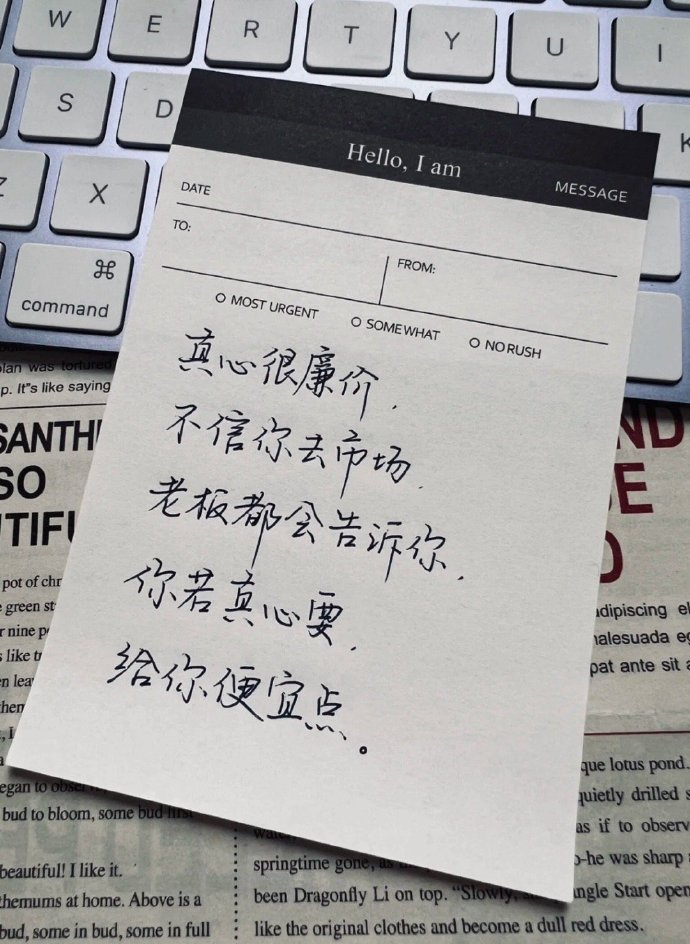 W E R T Y U I
S D K
X
⌘
command
Hello, I am
MESSAGE
DATE
TO:
FROM:
MOST URGENT
SOMEWHAT
NO RUSH
真心很廉价,
不信你去市场,
老板都会告诉你,
你若真心要,
给你便宜点。
lan was tortured
p. It"s like saying
SANTH
SO
TIFU
pot of chr
green st
nine p
like
them
began to obser
bud to bloom, some bud first
beautiful! I like it.
themums at home. Above is a
bud, some in bud, some in full
ND
adipiscing el
malesuada eg
pat ante sit a
que lotus pond.
quietly drilled s
as if to observ
springtime gone,
o-he was sharp
been Dragonfly Li on top. “Slowly,
ngle Start open
like the original clothes and become a dull red dress.